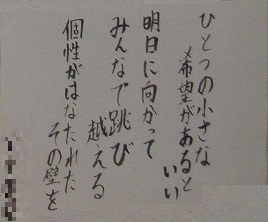 ひとつの小さな
希望があると
いい
明日に向かって
みんなで跳び
越える
個性がはなたれた
その壁を